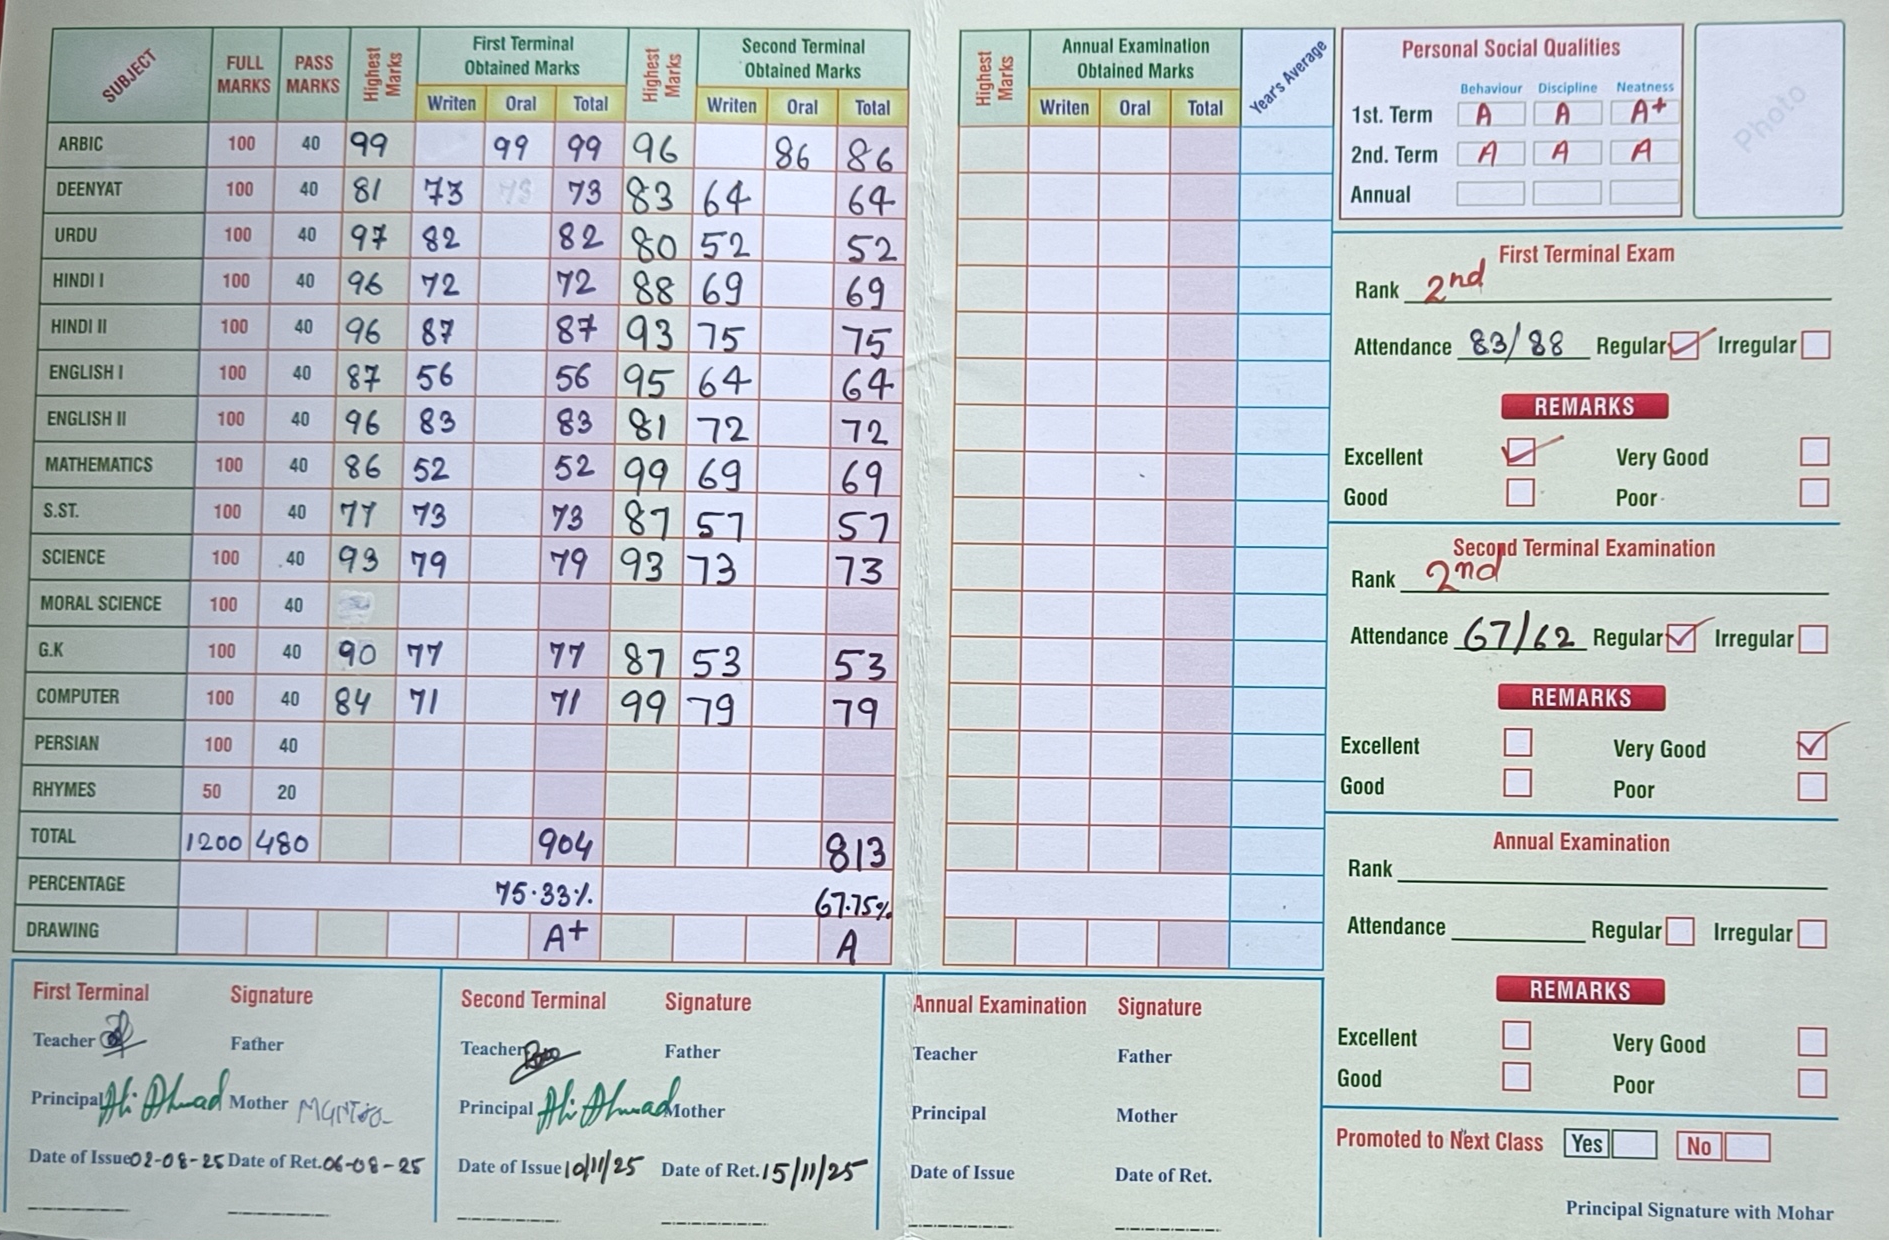 SUBJECT FULL MARKS PASS MARKS Highest Marks First Terminal Obtained Marks Highest Marks Second Terminal Obtained Marks Highest Marks Annual Examination Obtained Marks Year's Average
Writen Oral Total Writen Oral Total Writen Oral Total
ARBIC 100 40 99 99 99 96 86 86
DEENYAT 100 40 81 73 73 83 64 64
URDU 100 40 97 82 82 80 52 52
HINDI I 100 40 96 72 72 88 69 69
HINDI II 100 40 96 87 87 93 75 75
ENGLISH I 100 40 87 56 56 95 64 64
ENGLISH II 100 40 96 83 83 81 72 72
MATHEMATICS 100 40 86 52 52 99 69 69
S.ST. 100 40 77 73 73 87 57 57
SCIENCE 100 40 93 79 79 93 73 73
MORAL SCIENCE 100 40
G.K 100 40 90 77 77 87 53 53
COMPUTER 100 40 84 71 71 99 79 79
PERSIAN 100 40
RHYMES 50 20
TOTAL 1200 480 904 813
PERCENTAGE 75.33% 67.75%
DRAWING A+ A
Personal Social Qualities
Behaviour Discipline Neatness
1st. Term A A A+
2nd. Term A A A
Annual
Photo
First Terminal Exam
Rank 2nd
Attendance 83/88 Regular Irregular
REMARKS
Excellent Very Good
Good Poor
Second Terminal Examination
Rank 2nd
Attendance 67/62 Regular Irregular
REMARKS
Excellent Very Good
Good Poor
Annual Examination
Rank
Attendance Regular Irregular
REMARKS
Excellent Very Good
Good Poor
Promoted to Next Class Yes No
Principal Signature with Mohar
First Terminal Signature
Teacher Father
Principal Ali Ahmad Mother
Date of Issue 02-08-25 Date of Ret. 06-08-25
Second Terminal Signature
Teacher Father
Principal Ali Ahmad Mother
Date of Issue 10/11/25 Date of Ret. 15/11/25
Annual Examination Signature
Teacher Father
Principal Mother
Date of Issue Date of Ret.